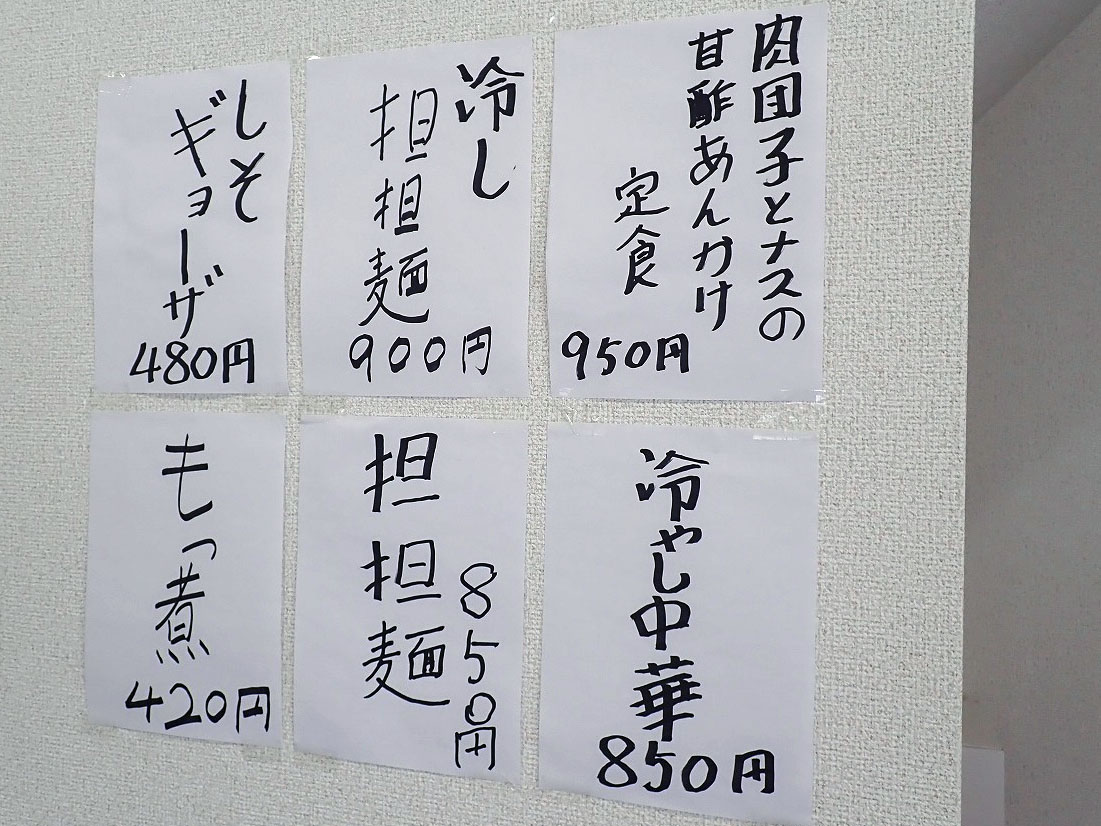 肉団子とナスの
甘酢あんかけ
定食
950円
冷し
担担麺
900円
しそ
ギョーザ
480円
冷やし中華
850円
担担麺
850円
もつ煮
420円